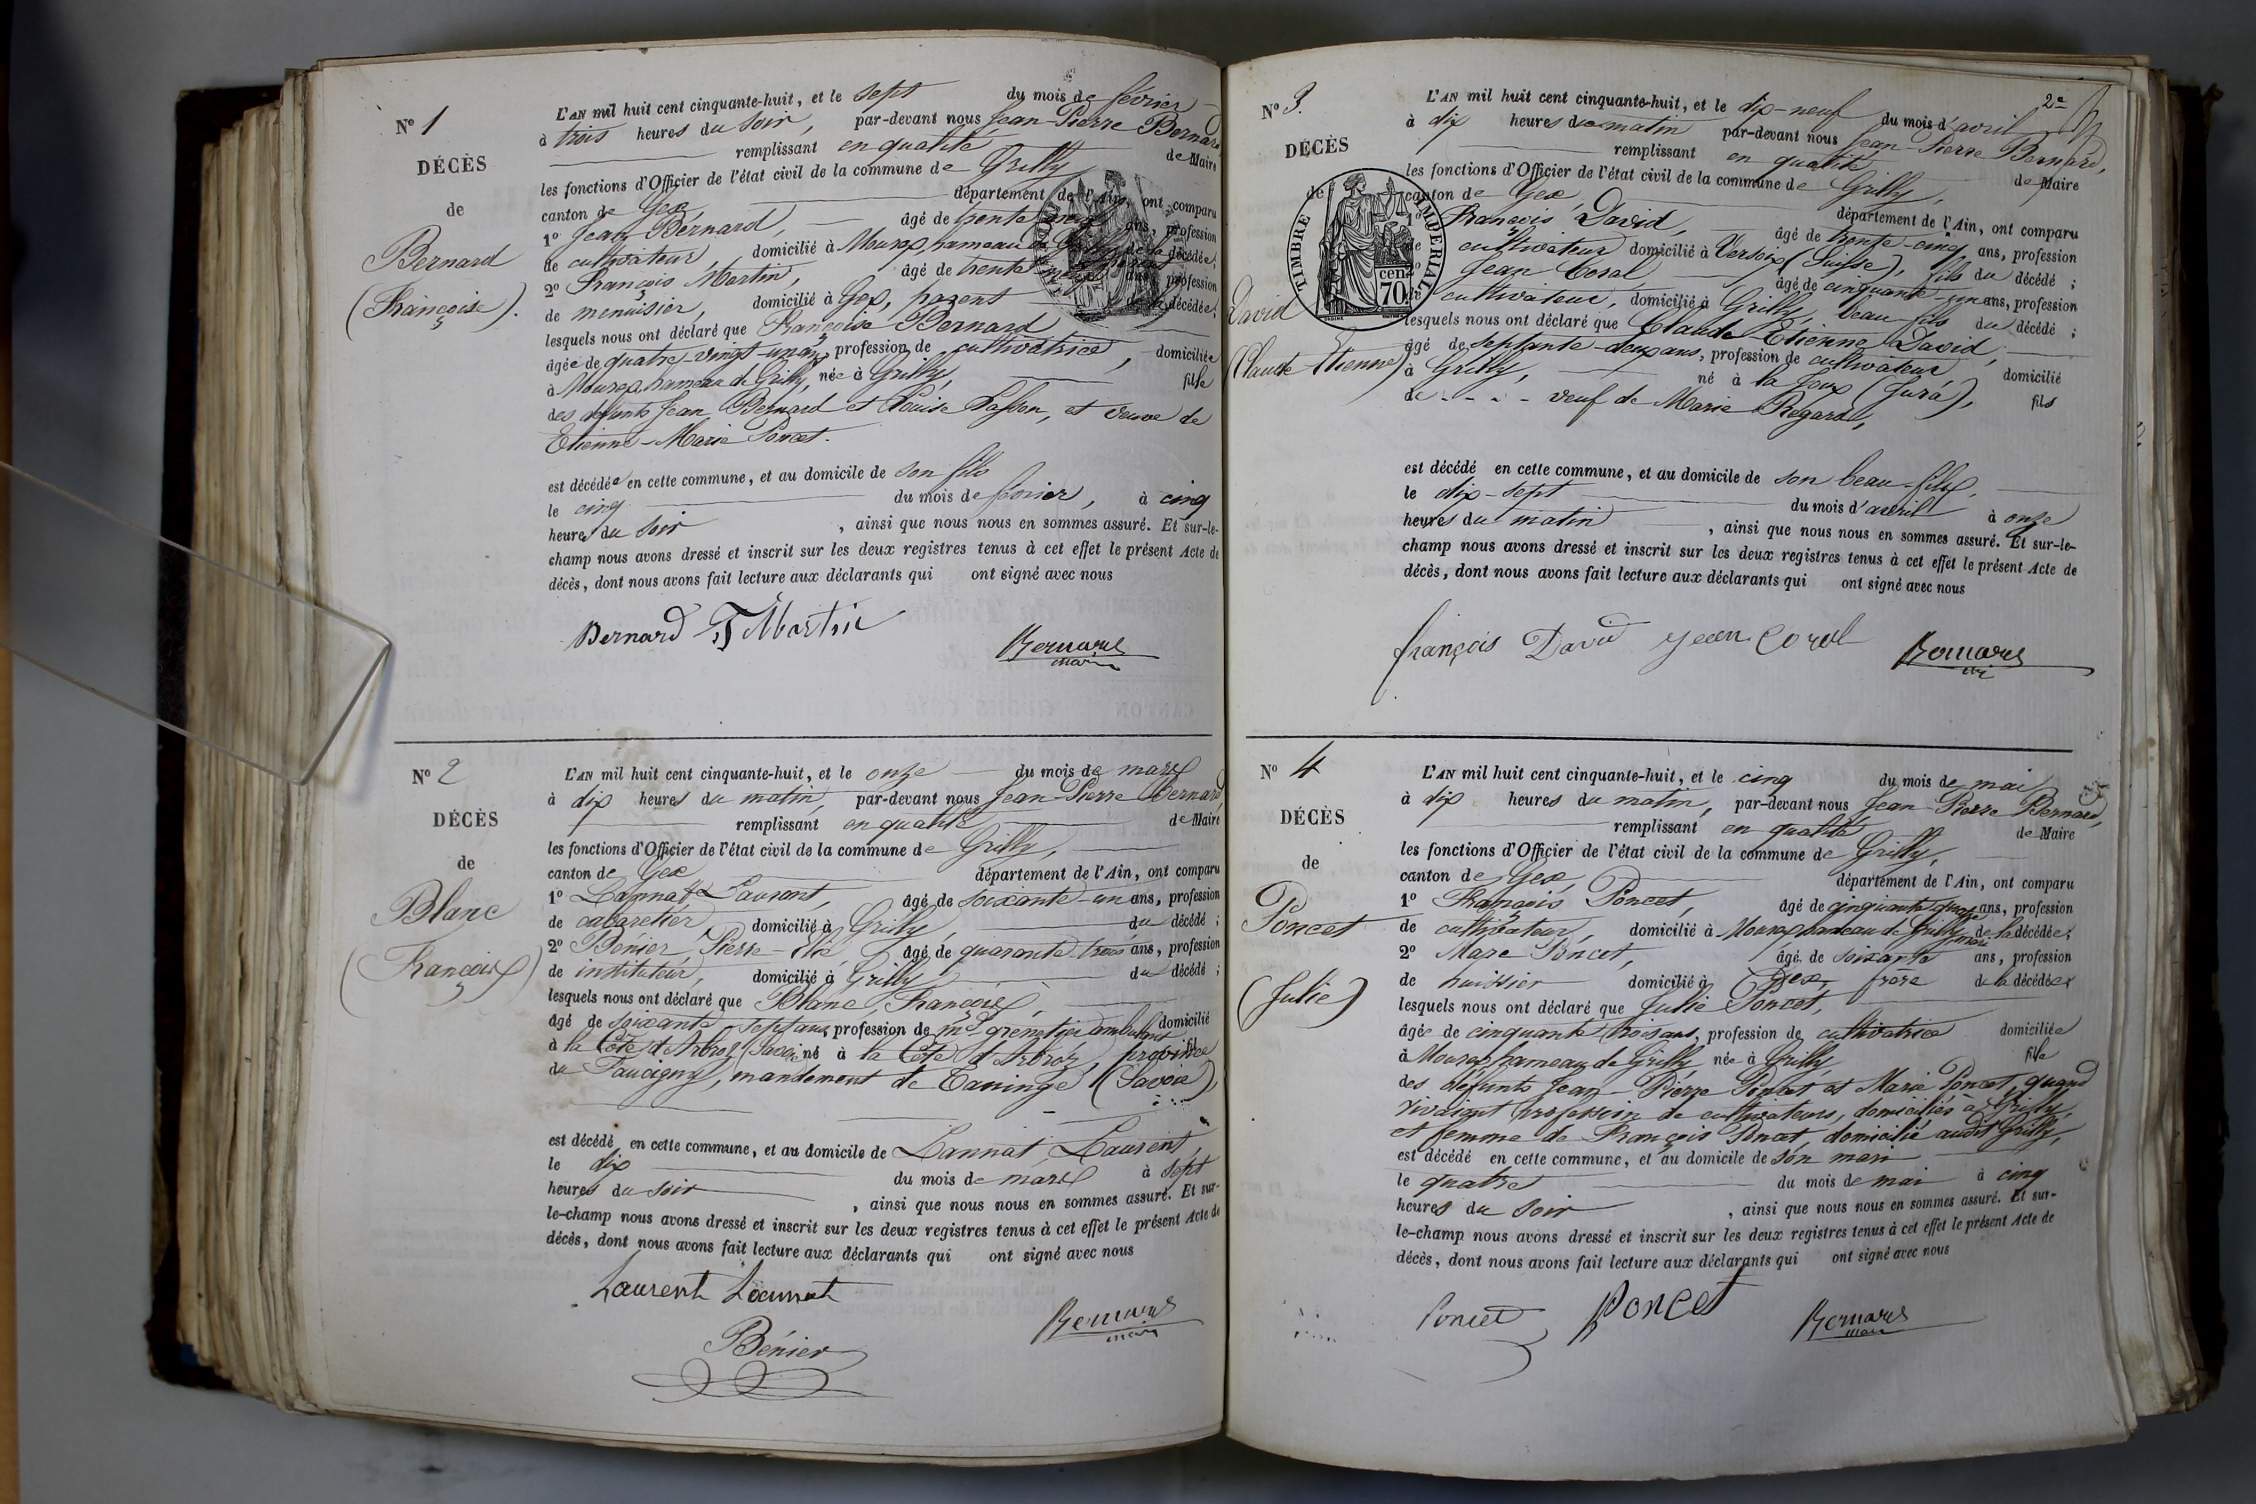 N° 1
DÉCÈS
de
Bernard
(Françoise).
L'AN mil huit cent cinquante-huit, et le sept du mois de février
à trois heures du soir, par-devant nous Jean-Pierre Bernard
remplissant en qualité de Maire
les fonctions d'Officier de l'état civil de la commune de Grilly
canton de Gex, département de l'Ain, ont comparu
1° Jean Bernard, âgé de trente ans, profession
de cultivateur, domicilié à Mourex, hameau de la décédée;
2° François Martin, âgé de trente ans, profession
de menuisier, domicilié à Gex, parent de la décédée;
lesquels nous ont déclaré que Françoise Bernard
âgée de quatre-vingt-un ans, profession de cultivatrice, domiciliée
à Mourex hameau de Grilly, née à Grilly, fille
des défunts Jean Bernard et Louise, et veuve de
Etienne-Marie Poncet.
est décédée en cette commune, et au domicile de son fils
le cinq du mois de février, à cinq
heures du soir, ainsi que nous nous en sommes assuré. Et sur-le-
champ nous avons dressé et inscrit sur les deux registres tenus à cet effet le présent Acte de
décès, dont nous avons fait lecture aux déclarants qui ont signé avec nous
Bernard F Martin
Bernard
maire
N° 2
DÉCÈS
de
Blanc
(François)
L'AN mil huit cent cinquante-huit, et le onze du mois de mars
à dix heures du matin, par-devant nous Jean-Pierre Bernard,
remplissant en qualité de Maire
les fonctions d'Officier de l'état civil de la commune de Grilly,
canton de Gex département de l'Ain, ont comparu
1° Lannat Laurent, âgé de soixante-un ans, profession
de cabaretier domicilié à Grilly, du décédé;
2° Bénier, Pierre-Elie, âgé de quarante-trois ans, profession
de instituteur, domicilié à Grilly du décédé;
lesquels nous ont déclaré que Blanc, François,
âgé de soixante sept ans, profession de md grenetier ambulant domicilié
à la Côte d'Arbroz (Savoie) né à la Côte d'Arbroz, province
du Faucigny, mandement de Taninge (Savoie),
est décédé en cette commune, et au domicile de Lannat, Laurent,
le dix du mois de mars à sept
heures du soir, ainsi que nous nous en sommes assuré. Et sur-
le-champ nous avons dressé et inscrit sur les deux registres tenus à cet effet le présent Acte de
décès, dont nous avons fait lecture aux déclarants qui ont signé avec nous
Laurent Lannat
Bernard
maire
Bénier
2e
N° 3.
DÉCÈS
de
David
(Claude-Etienne)
TIMBRE IMPERIAL
70 cen
L'AN mil huit cent cinquante-huit, et le dix-neuf du mois d'avril
à dix heures du matin par-devant nous Jean-Pierre Bernard,
remplissant en qualité de Maire
les fonctions d'Officier de l'état civil de la commune de Grilly,
canton de Gex, département de l'Ain, ont comparu
1° François David, âgé de trente-cinq ans, profession
de cultivateur domicilié à Versoix (Suisse), fils du décédé;
2° Jean Coral, âgé de cinquante-un ans, profession
de cultivateur, domicilié à Grilly, beau-fils du décédé;
lesquels nous ont déclaré que Claude-Etienne David,
âgé de septante-deux ans, profession de cultivateur domicilié
à Grilly, né à la Joux (Jura), fils
de - - - - veuf de Marie Regard,
est décédé en cette commune, et au domicile de son beau-fils,
le dix-sept du mois d'avril à onze
heures du matin, ainsi que nous nous en sommes assuré. Et sur-le-
champ nous avons dressé et inscrit sur les deux registres tenus à cet effet le présent Acte de
décès, dont nous avons fait lecture aux déclarants qui ont signé avec nous
françois David jean Coral
Bernard
N° 4
DÉCÈS
de
Poncet
(Julie)
L'AN mil huit cent cinquante-huit, et le cinq du mois de mai
à dix heures du matin, par-devant nous Jean-Pierre Bernard,
remplissant en qualité de Maire
les fonctions d'Officier de l'état civil de la commune de Grilly,
canton de Gex, département de l'Ain, ont comparu
1° François Poncet, âgé de cinquante quatre ans, profession
de cultivateur, domicilié à Mourex hameau de Grilly, mari de la décédée;
2° Marc Poncet, âgé de soixante ans, profession
de huissier domicilié à Gex, frère de la décédée;
lesquels nous ont déclaré que Julie Poncet,
âgée de cinquante trois ans, profession de cultivatrice domiciliée
à Mourex hameau de Grilly, née à Grilly fille
des défunts Jean-Pierre Poncet et Marie Poncet, quand
vivaient profession de cultivateurs, domiciliés à Grilly,
et femme de François Poncet, domicilié audit Grilly,
est décédé en cette commune, et au domicile de son mari
le quatre du mois de mai à cinq
heures du soir, ainsi que nous nous en sommes assuré. Et sur-
le-champ nous avons dressé et inscrit sur les deux registres tenus à cet effet le présent Acte de
décès, dont nous avons fait lecture aux déclarants qui ont signé avec nous
Poncet Poncet
Bernard
maire